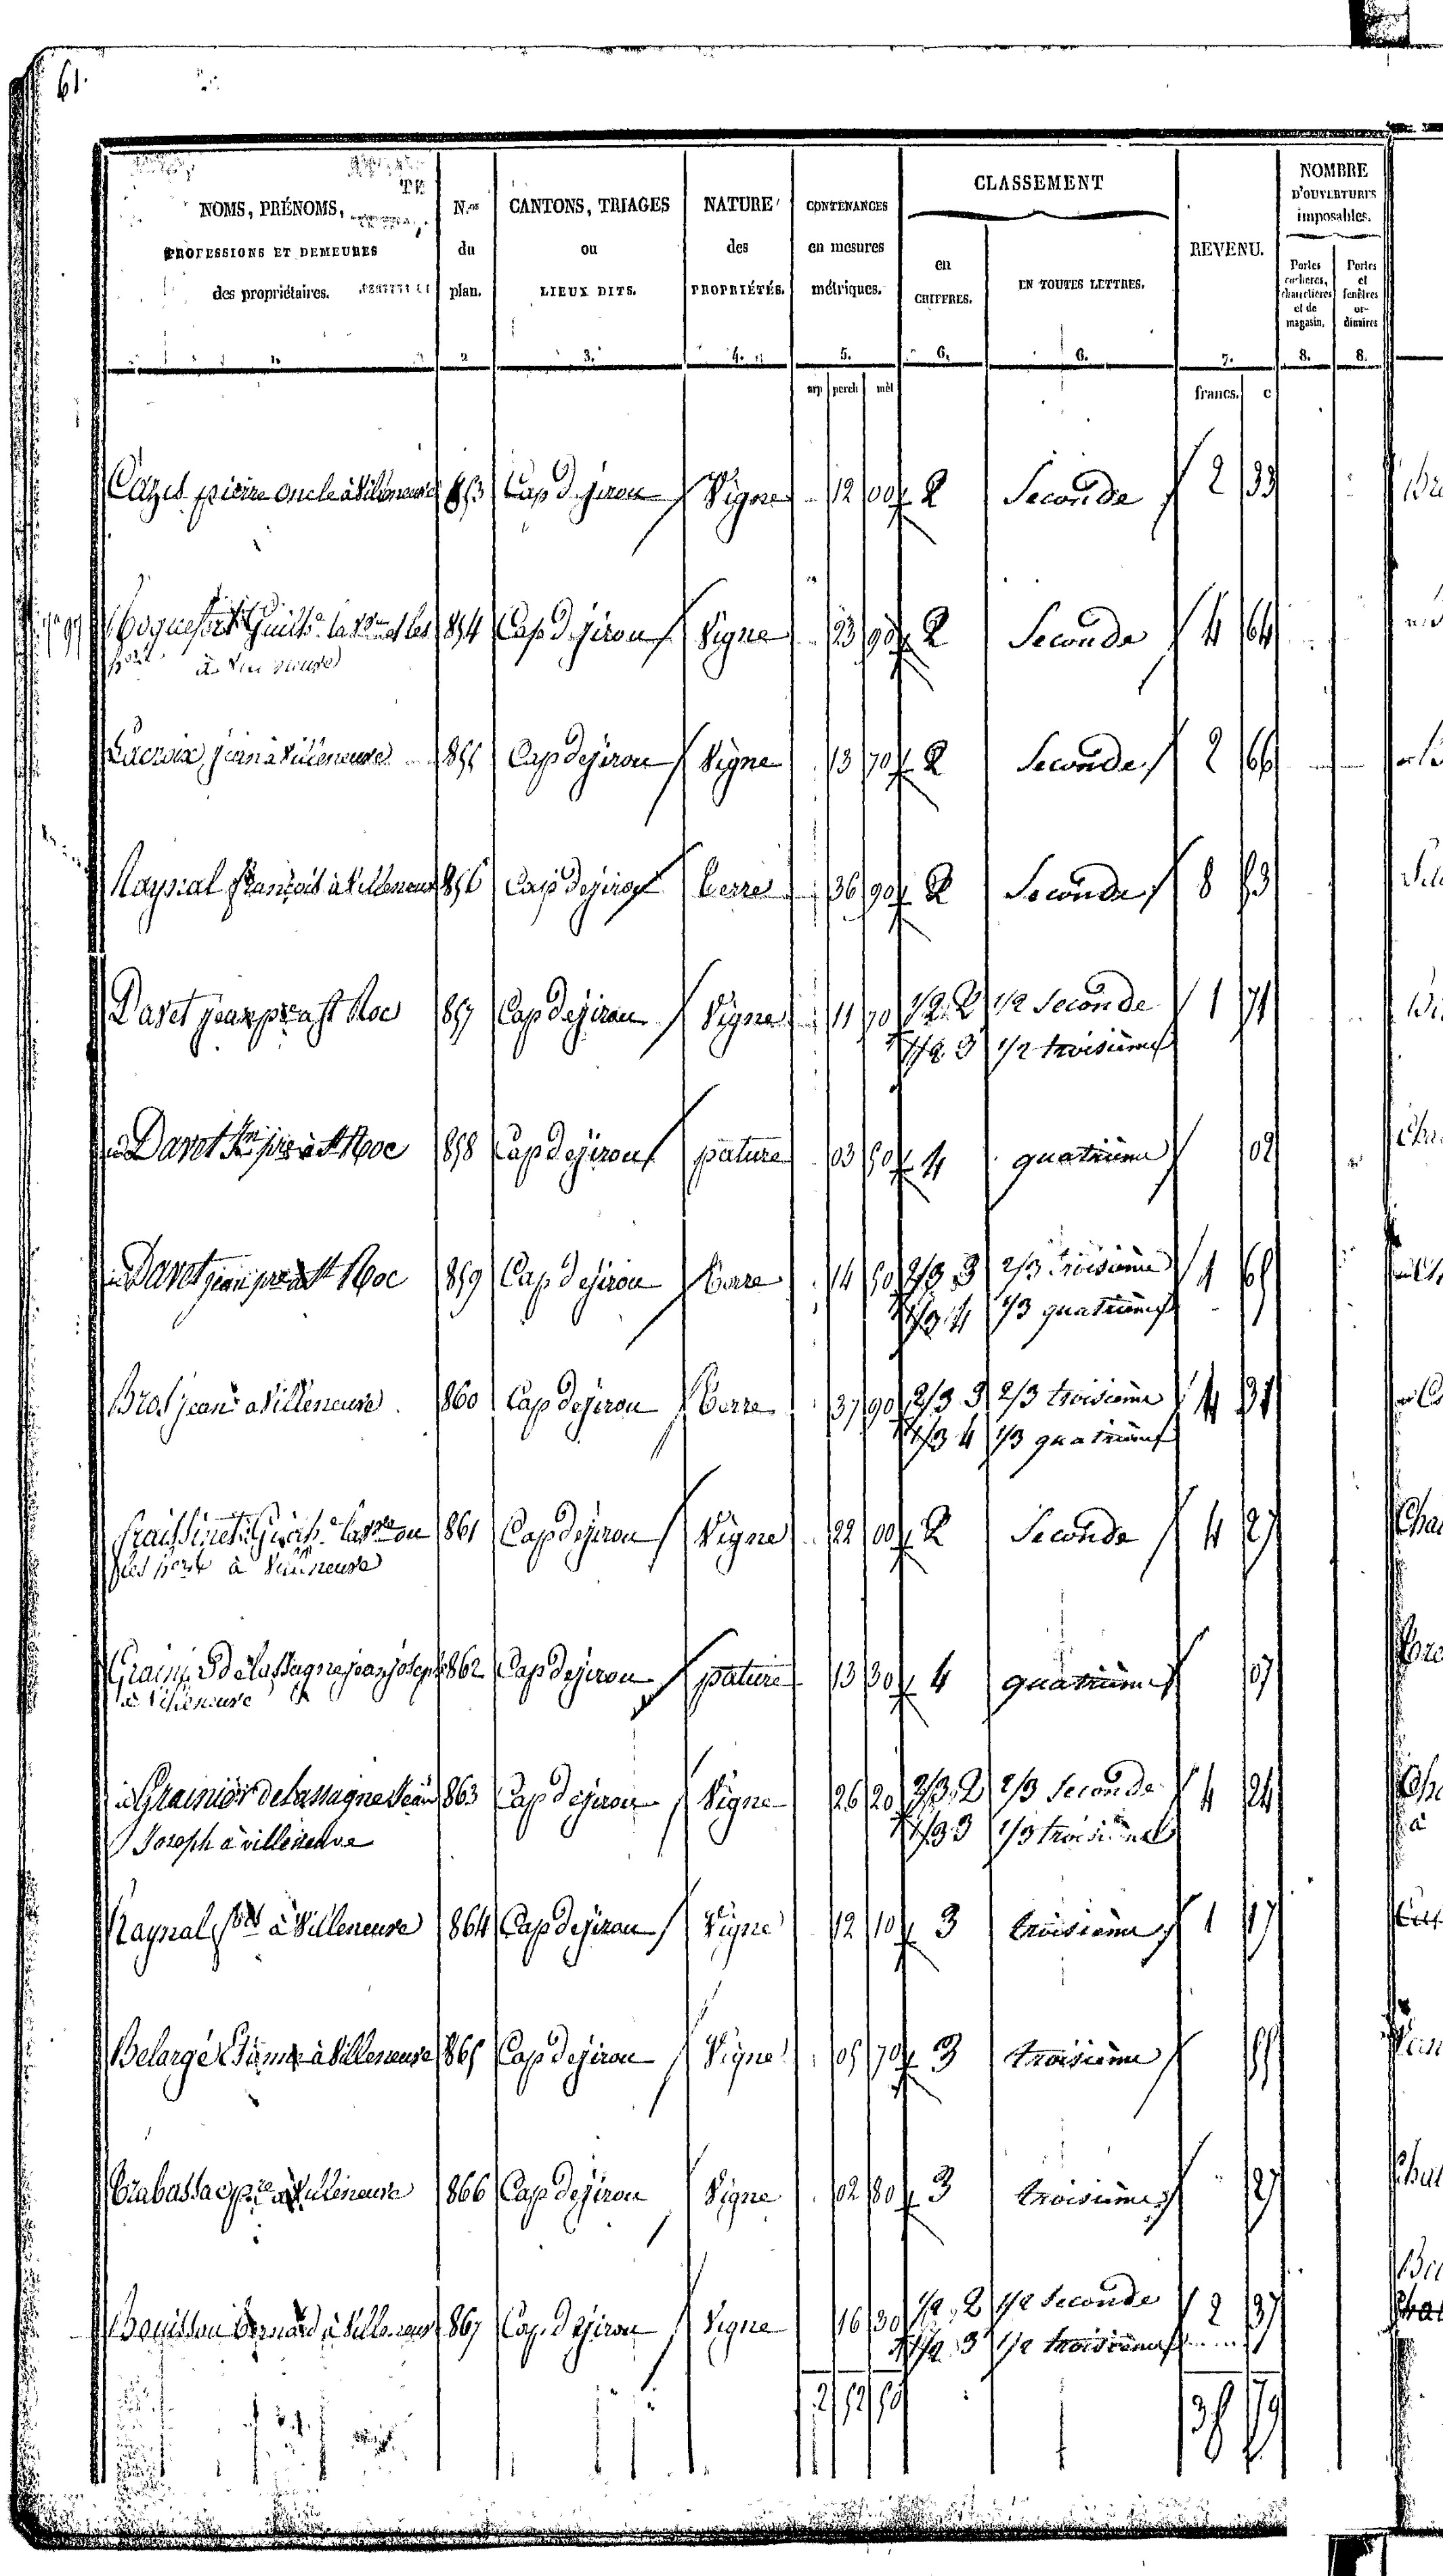 61.
NOMS, PRÉNOMS,
PROFESSIONS ET DEMEURES
des propriétaires.
1.
N.os
du
plan.
2
CANTONS, TRIAGES
ou
LIEUX DITS.
3.
NATURE
des
PROPRIÉTÉS.
4.
CONTENANCES
en mesures
métriques.
5.
CLASSEMENT
en
CHIFFRES.
6.
EN TOUTES LETTRES.
6.
REVENU.
7.
NOMBRE
D'OUVERTURES
imposables.
Portes
cochères,
charretières
et de
magasin.
8.
Portes
et
fenêtres
or-
dinaires
8.
arp perch mèt francs. c
Cazes pierre oncle à Villeneuve 853 Cap Dejirou Vigne 12 00 2 Seconde 2 33
Roquefort 854 Cap Dejirou Vigne 23 90 2 Seconde 4 64
à Villeneuve
Lacroix jean à Villeneuve 855 Cap Dejirou Vigne 13 70 2 Seconde 2 66
Raynal françois à Villeneuve 856 Cap dejirou Terre 36 90 2 Seconde 8 53
Davet jean pre a St Roc 857 Cap Dejirou Vigne 11 70 1/2 2 1/2 Seconde 1 71
1/2 3 1/2 troisième
Davet Jn pre à St Roc 858 Cap Dejirou pature 03 50 4 quatrième 02
Davet jean pre a St Roc 859 Cap Dejirou Terre 14 50 2/3 3 2/3 troisième 1 65
1/3 4 1/3 quatrième
Bros jean a Villeneuve 860 Cap Dejirou Terre 37 90 2/3 3 2/3 troisième 4 31
1/3 4 1/3 quatrième
fraissinet 861 Cap Dejirou Vigne 22 00 2 Seconde 4 27
à Villeneuve
Grainier de Lassagne jean joseph 862 Cap dejirou pature 13 30 4 quatrième 07
à Villeneuve
Grainier de Lassagne Jean 863 Cap dejirou Vigne 26 20 2/3 2 2/3 Seconde 4 24
Joseph à villeneuve 1/3 3 1/3 troisième
Raynal à Villeneuve 864 Cap Dejirou Vigne 12 10 3 troisième 1 17
Belargé Etienne à Villeneuve 865 Cap Dejirou Vigne 05 70 3 troisième 55
Trabassac pre à Villeneuve 866 Cap Dejirou Vigne 02 80 3 troisième 27
Bouisson Bernard à Villeneuve 867 Cap Dejirou Vigne 16 30 1/2 2 1/2 Seconde 2 37
1/2 3 1/2 troisième
2 52 50 38 79